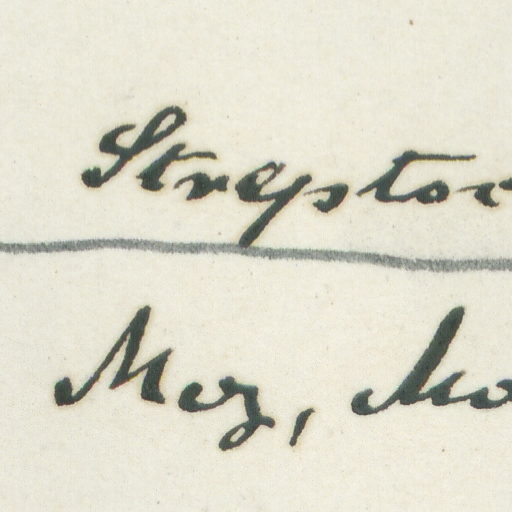 Strepstor
Moz, Mo